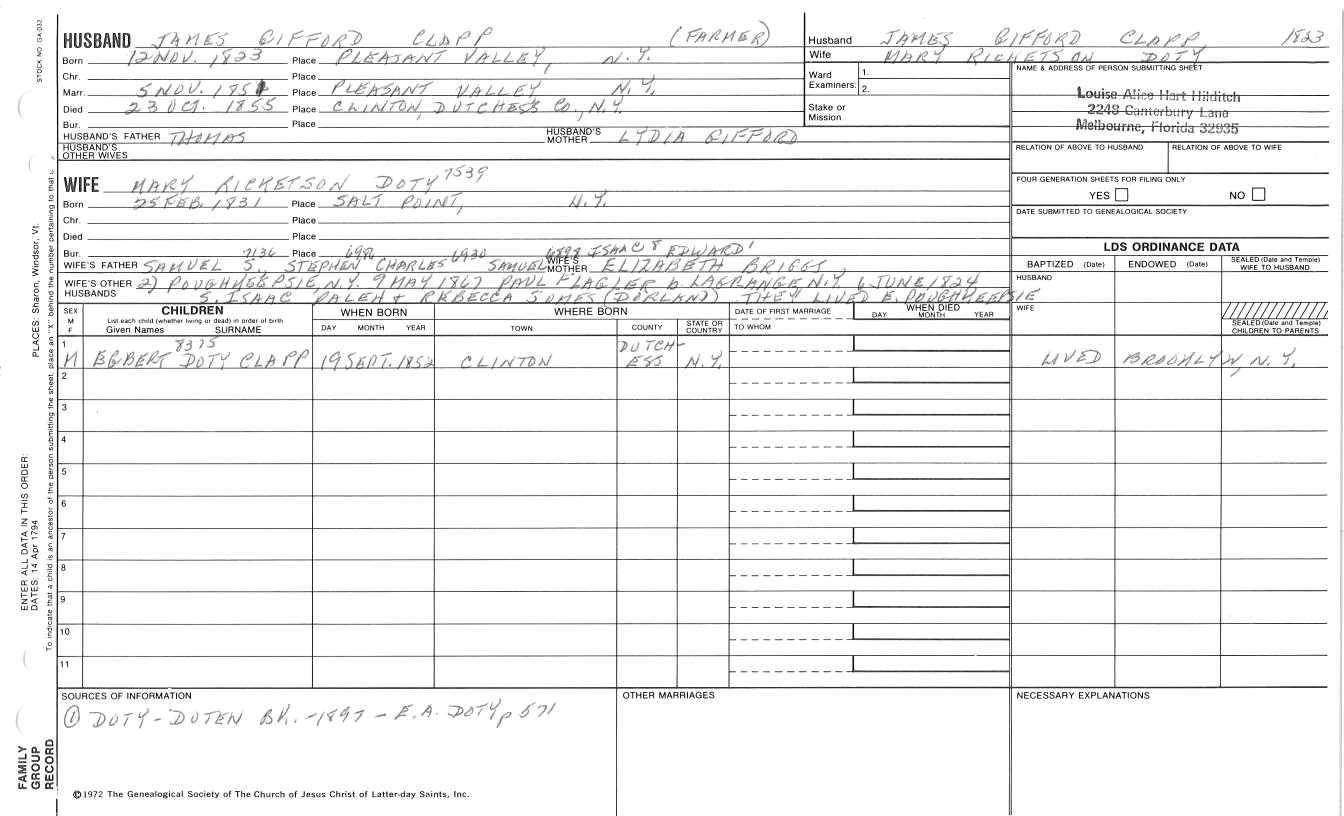 STOCK NO. GA-032
HUSBAND JAMES GIFFORD CLAPP (FARMER)
Born 12 NOV. 1823 Place PLEASANT VALLEY, N.Y.
Chr. Place
Marr. 5 NOV. 1851 Place PLEASANT VALLEY N.Y.
Died 23 OCT. 1855 Place CLINTON, DUTCHESS CO., N.Y.
Bur. Place
HUSBAND'S FATHER THOMAS HUSBAND'S MOTHER LYDIA GIFFORD
HUSBAND'S OTHER WIVES
Husband JAMES GIFFORD CLAPP, 1823
Wife MARY RICKETSON DOTY
Ward Examiners: 1. 2.
Stake or Mission
NAME & ADDRESS OF PERSON SUBMITTING SHEET
Louise Alice Hart Hilditch
2248 Canterbury Lane
Melbourne, Florida 32935
RELATION OF ABOVE TO HUSBAND RELATION OF ABOVE TO WIFE
FOUR GENERATION SHEETS FOR FILING ONLY
YES NO
DATE SUBMITTED TO GENEALOGICAL SOCIETY
WIFE MARY RICKETSON DOTY 7539
Born 25 FEB. 1831 Place SALT POINT, N.Y.
Chr. Place
Died Place
Bur. 7136 6930 ISAAC 8 EDWARD 1
WIFE'S FATHER SAMUEL S., STEPHEN CHARLES SAMUEL WIFE'S MOTHER ELIZABETH BRIGGS
WIFE'S OTHER HUSBANDS 2) POUGHKEEPSIE, N.Y. 9 MAY 1867 PAUL FLAGLER b LAGRANGE, N.Y. 6 JUNE 1824
S. ISAAC & REBECCA (DORLAND) THEY LIVED E. POUGHKEEPSIE
LDS ORDINANCE DATA
BAPTIZED (Date) ENDOWED (Date) SEALED (Date and Temple) WIFE TO HUSBAND
HUSBAND
WIFE
SEALED (Date and Temple) CHILDREN TO PARENTS
SEX M F CHILDREN List each child (whether living or dead) in order of birth Given Names SURNAME
WHEN BORN DAY MONTH YEAR
WHERE BORN TOWN COUNTY STATE OR COUNTRY
DATE OF FIRST MARRIAGE TO WHOM
WHEN DIED DAY MONTH YEAR
8375
1 M EGBERT DOTY CLAPP 19 SEPT. 1852 CLINTON DUTCHESS N.Y. LIVED BROOKLYN, N.Y.
2
3
4
5
6
7
8
9
10
11
SOURCES OF INFORMATION
① DOTY-DOTEN BK. -1897 - E.A. DOTY p 571
OTHER MARRIAGES
NECESSARY EXPLANATIONS
©1972 The Genealogical Society of The Church of Jesus Christ of Latter-day Saints, Inc.
PLACES: Sharon, Windsor, Vt.
ENTER ALL DATA IN THIS ORDER:
DATES: 14 Apr 1794
To indicate that a child is an ancestor of the person submitting the sheet, place an "X" behind the number pertaining to that c
FAMILY GROUP RECORD